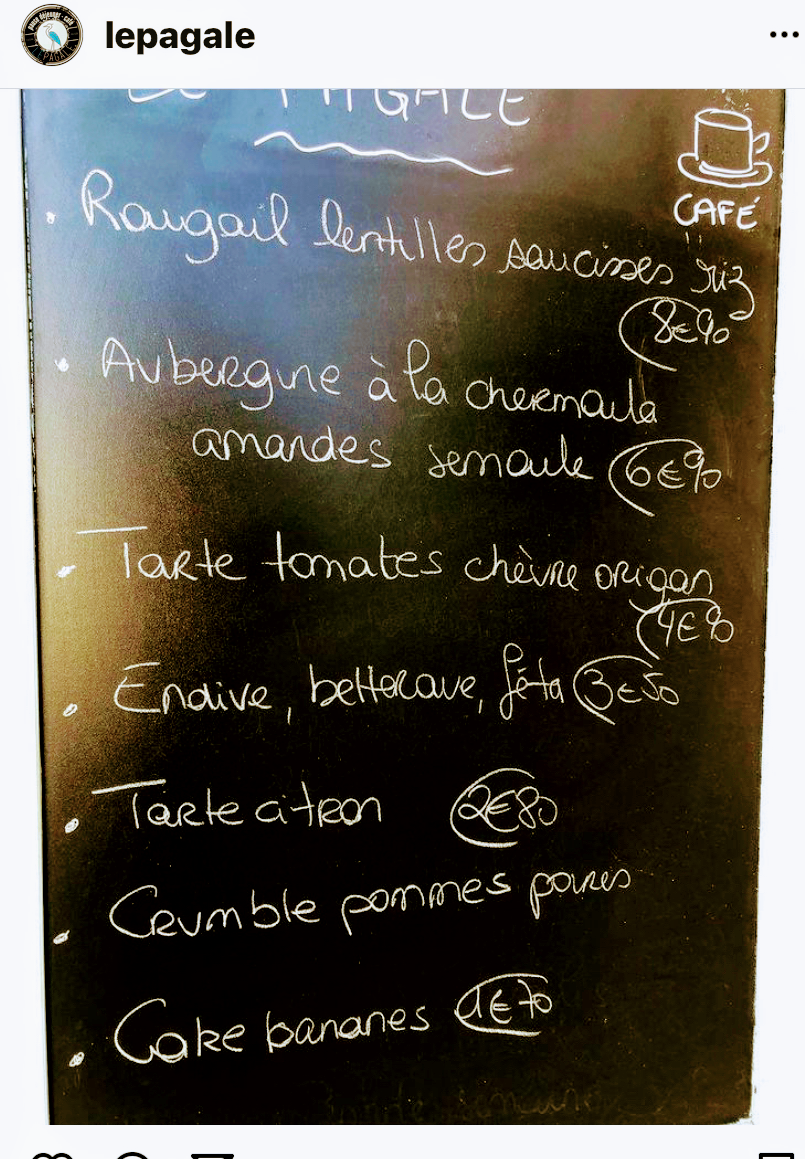 lepagale
LE PAGALE
CAFÉ
Rougail lentilles saucisses riz
8€90
Aubergine à la chermoula
amandes semoule 6€90
Tarte tomates chèvre origan
4€90
Endive, betterave, féta 3€50
Tarte citron 2€80
Crumble pommes poires
Cake bananes 1€70